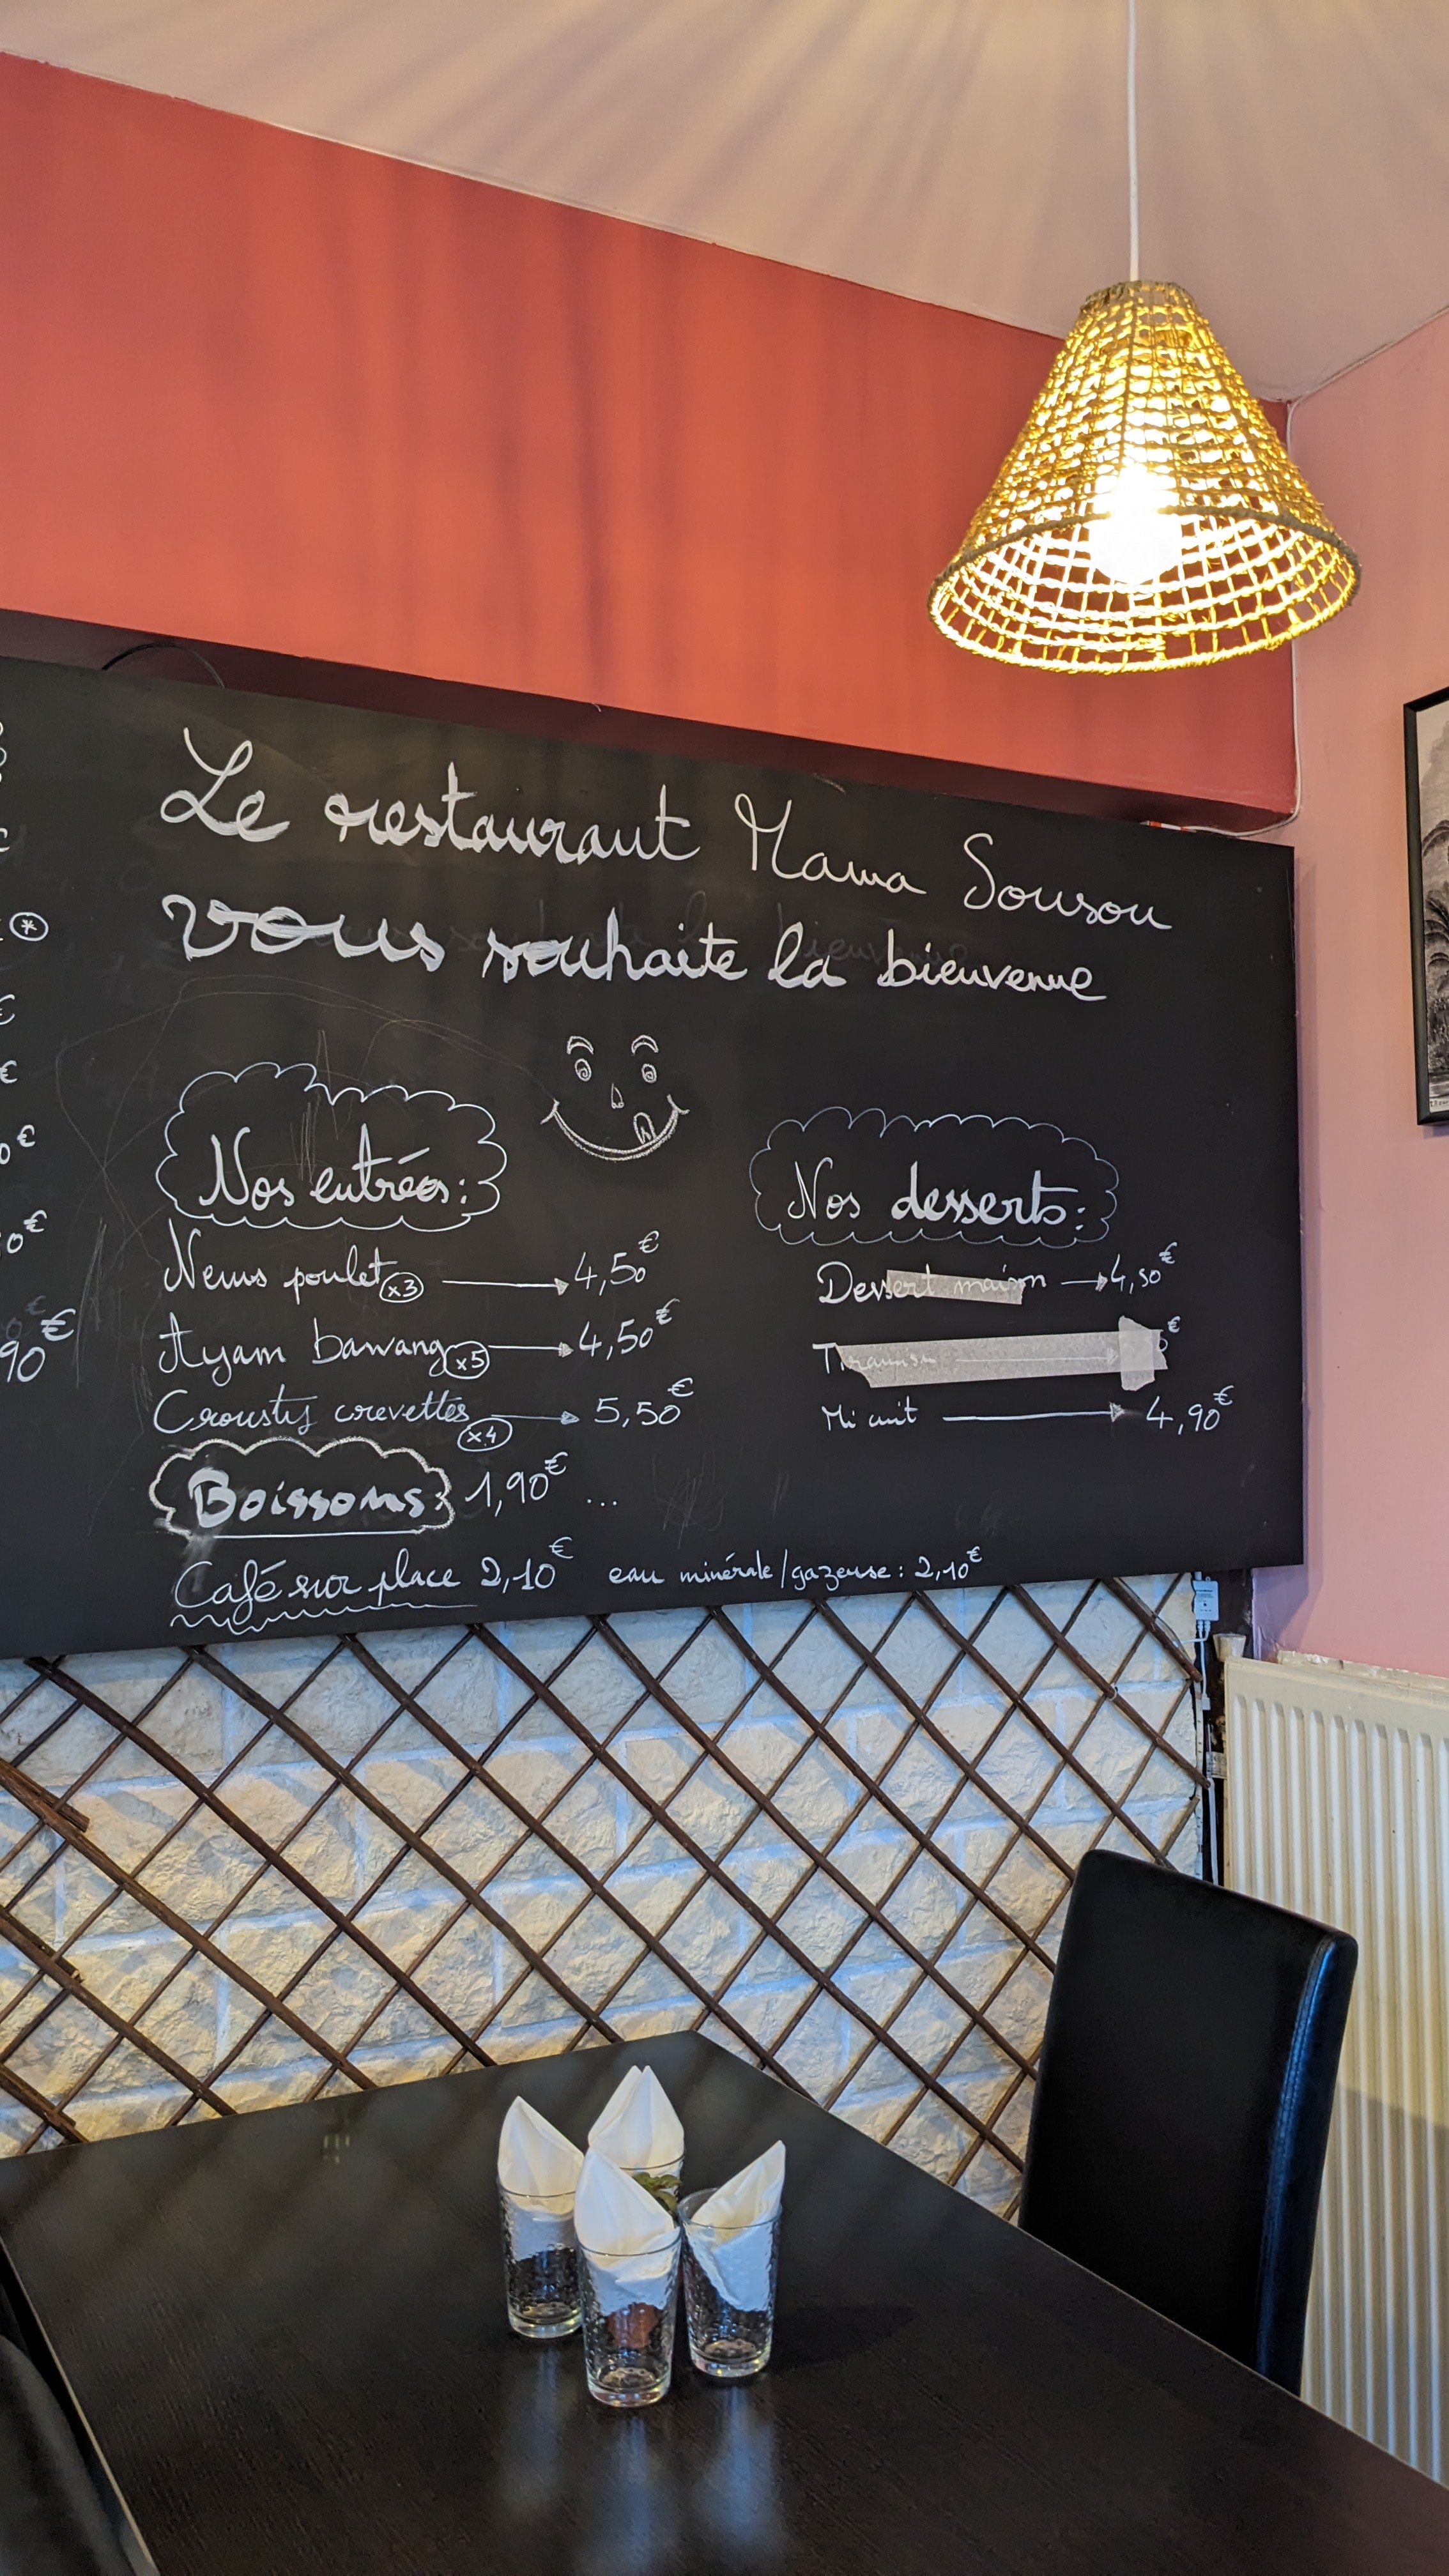 Le restaurant Mama Sousou
vous souhaite la bienvenue
Nos entrées:
Nems poulet x3 → 4,50€
Ayam bawang x5 → 4,50€
Crousty crevettes x4 → 5,50€
Boissons: 1,90€ ...
Café sur place 2,10€ eau minérale/gazeuse: 2,10€
Nos desserts:
Dessert maison → 4,50€
Tiramisu → €
Mi cuit → 4,90€
€
€
€
0€
0€
90€